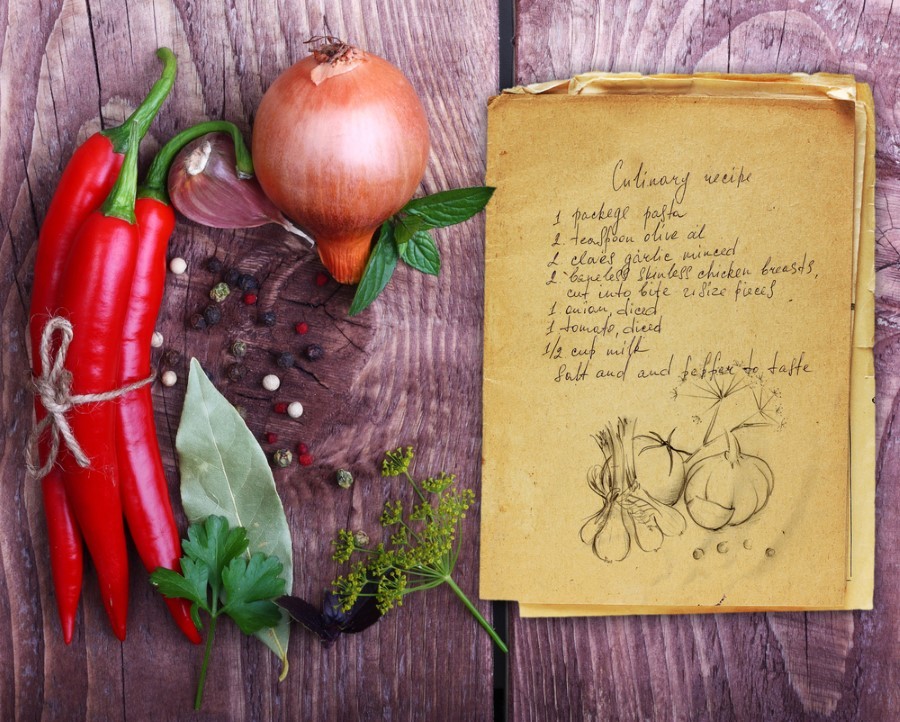 Culinary recipe
1 packege pasta
2 teaspoon olive oil
2 claes garlic minced
2 boneless skinless chicken breasts,
cut into bite size pieces
1 onion, diced
1 tomato, diced
1/2 cup milk
Salt and and pepper to taste